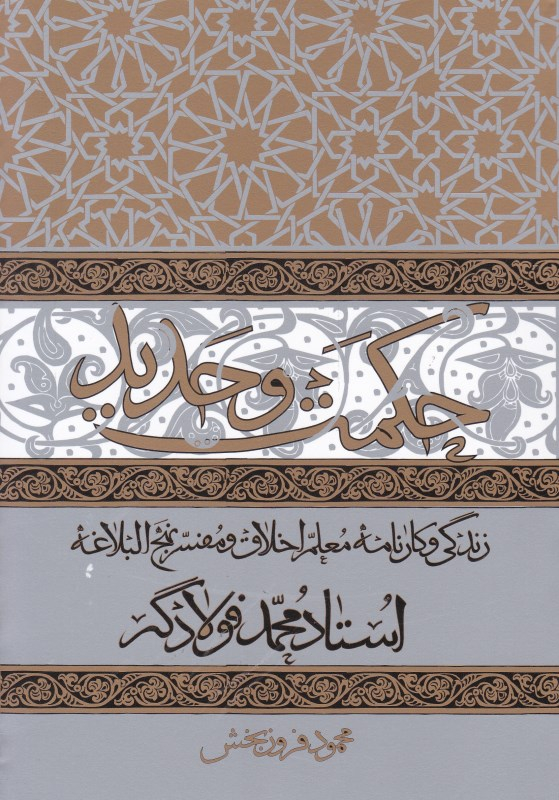 حکمت و حدید
زندگی و کارنامهٔ معلّم اخلاق و مُفسّر نهج البلاغه
اُستاد محمّد فولادگر
محمود فروزبخش